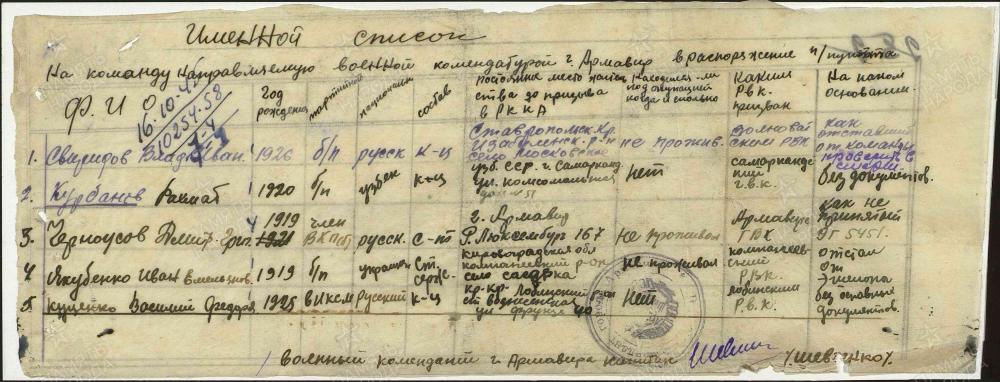 Именной список
На команду направляемую военной комендатурой г. Армавир в распоряжение н/ пункта
Ф.И.О. год рождения партийн. национальн. состав постоянное место жительства до призыва в РККА Находился ли под оккупацией когда и сколько Каким Р.в.к. призван На каком основании
16.10.4
10254.58
1. Свиридов Влад. Иван. 1926 б/п русск к-ц Ставропольск. Кр. село Московское не прожив. РВК как отставший от команды
2. Курбанов Рахмат 1920 б/п узбек к-ц узб. ССР. г. Самарканд ул. Комсомольская нет самаркандский г.в.к. без документов.
3. Черноусов Дмит. Григ. 1919 1921 член ВКП(б) русск. с-т г. Армавир Р. Люксембург 167 не проживал Армавирс ГВК как не принятый ЭГ 5451.
4. Якубенко Иван Емельянов. 1919 б/п украин ст. серж. кировоградская обл компанеевский р-он село не проживал компанеевский Р.В.К. отстал от эшелона
5. Куценко Василий Федоров 1925 ВЛКСМ русский к-ц кр-кр. Лабинский ст. Вознесенская ул. Фрунзе 40 нет лабинским Р.в.к. без основных документов.
Военный комендант г. Армавира капитан /Шевченко/